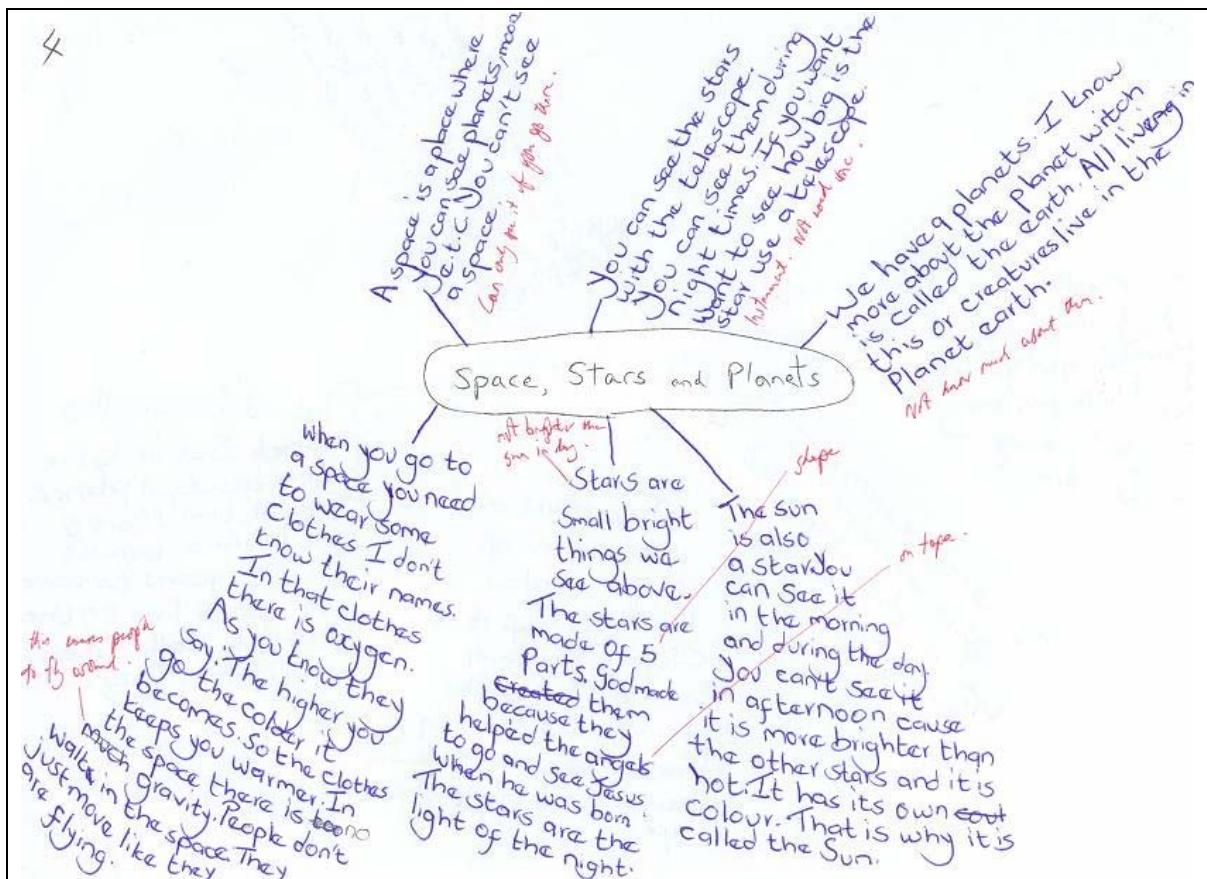 4
A space is a place where
you can see planets, moon
e.t.c. You can't see
a space.
Can only see it if you go there.
You can see the stars
with the telescope.
You can see them during
night times. If you want
want to see how big is the
star use a telescope.
Instrument. Not need one.
We have 9 planets. I know
more about the planet witch
is called the earth. All living in
this or creatures live in the
Planet earth.
Not know much about them.
Space, Stars and Planets
When you go to
a space you need
to wear some
Clothes I don't
know their names.
In that clothes
there is oxygen.
As you know they
say: The higher you
go the colder it
becomes. So the clothes
keeps you warmer. In
the space there is too no
much gravity. People don't
walk in the space. They
just move like they
are flying.
this means people
to fly around.
not brighter than
sun in day.
Stars are
Small bright
things we
see above.
The stars are
made of 5
Parts. god made
Created them
because they
helped the angels
to go and see Jesus
when he was born
The stars are the
light of the night.
shape
on top.
The sun
is also
a star. You
can see it
in the morning
and during the day
you can't see it
in afternoon cause
it is more brighter than
the other stars and it is
hot. It has its own
Colour. That is why it is
called the Sun.